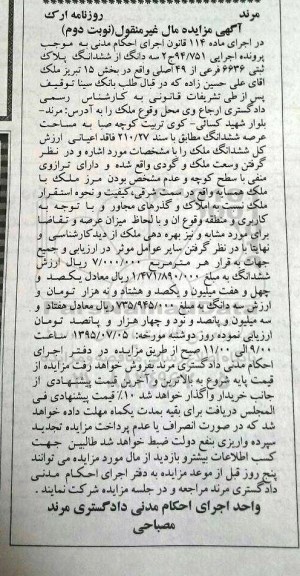 مرند روزنامه ارک
آگهی مزایده مال غیرمنقول(نوبت دوم)
در اجرای ماده ۱۱۴ قانون اجرای احکام مدنی به موجب
پرونده اجرایی ۹۴/۷۵۱ج۲ سه دانگ از ششدانگ پلاک
ثبتی ۶۶۳۶ فرعی از ۴۹ اصلی واقع در بخش ۱۵ تبریز ملک
آقای علی حسین زاده که در قبال طلب بانک سینا توقیف
پس از طی تشریفات قانونی به کارشناس رسمی
دادگستری ارجاع وی محل وقوع ملک را به آدرس: مرند-
بلوار شهید کسائی- کوی تربیت کوچه صبا به مساحت
عرصه ششدانگ مطابق با سند ۲۱۰/۲۷ فاقد اعیانی ارزش
کل ششدانگ ملک را با مشخصات مورد اشاره و در نظر
گرفتن وسعت ملک و گودی واقع شده و دارای ترازوی
منفی با سطح کوچه و عدم مشخص بودن مرز ملک با
ملک همسایه واقع در سمت شرقی، کیفیت و نحوه استقرار
ملک نسبت به املاک و گذرهای مجاور و با توجه به
کاربری و منطقه وقوع آن و با لحاظ میزان عرضه و تقاضا
برای مورد مشابه و نیز بهره دهی ملک از دید کارشناسی و
نهایتا با در نظر گرفتن سایر عوامل موثر در ارزیابی و جمیع
جهات به قرار هر مترمربع ۷/۰۰۰/۰۰۰ ریال ارزش
ششدانگ به مبلغ ۱/۴۷۱/۸۹۰/۰۰۰ ریال معادل یکصد و
چهل و هفت میلیون و یکصد و هشتاد و نه هزار تومان و
ارزش سه دانگ به مبلغ ۷۳۵/۹۴۵/۰۰۰ ریال معادل هفتاد و
سه میلیون و پانصد و نود و چهار هزار و پانصد تومان
ارزیابی نموده روز دوشنبه مورخه: ۱۳۹۵/۰۷/۰۵ ساعت
۹/۰۰ الی ۱۱/۰۰ صبح از طریق مزایده در دفتر اجرای
احکام مدنی دادگستری مرند بفروش خواهد رفت مزایده از
قیمت پایه شروع به بالاترین و آخرین قیمت پیشنهادی از
جانب خریدار واگذار خواهد شد ۱۰٪ قیمت پیشنهادی فی
المجلس دریافت برای بقیه بمدت یکماه مهلت داده خواهد
شد که در صورت انصراف یا عدم پرداخت مزایده تجدید
سپرده واریزی بنفع دولت ضبط خواهد شد طالبین جهت
کسب اطلاعات بیشتر و بازدید از مال مورد مزایده می توانند
پنج روز قبل از موعد مزایده به دفتر اجرای احکام مدنی
دادگستری مرند مراجعه و در جلسه مزایده شرکت نمایند .
واحد اجرای احکام مدنی دادگستری مرند
مصباحی